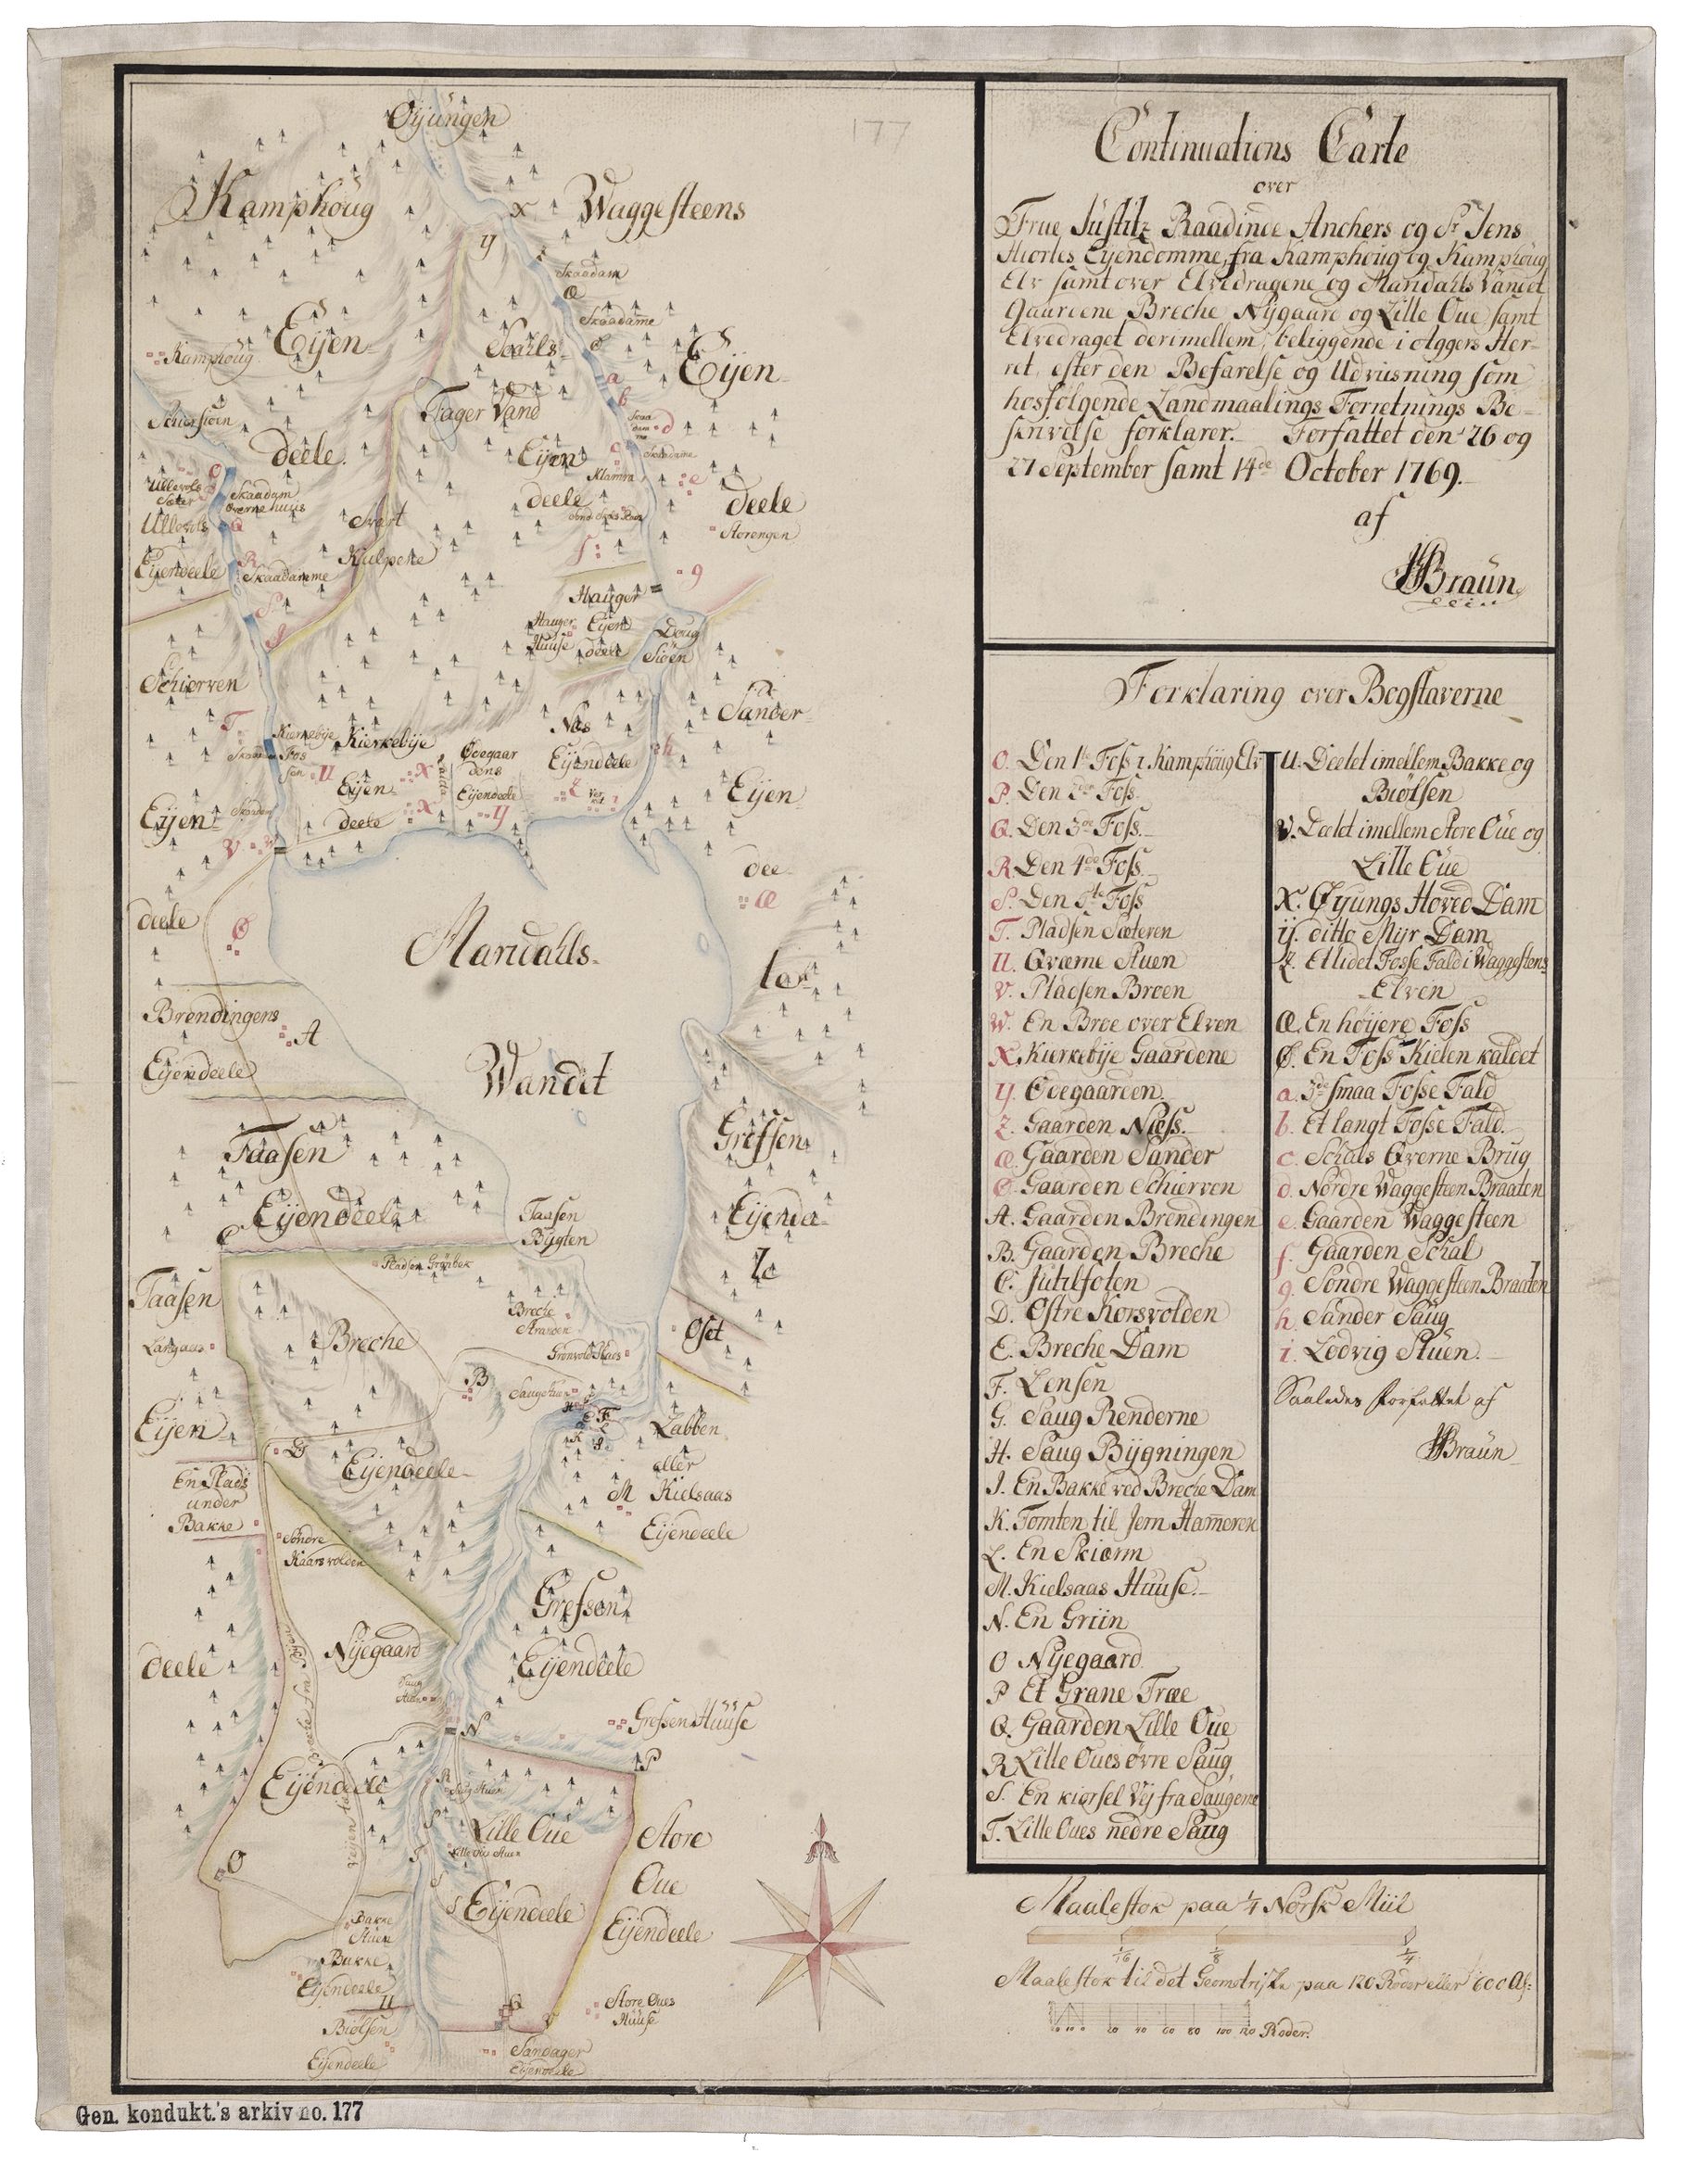 Øyungen
177
Kamphoug
Waggesteens
X
y
Skaadam
Æ
Skaadame
Ø
Eijen-
Scahls-
Eijen-
Kamphoug
a
b
Fager Vand
d
Schiersiøen
deele.
Eijen
c
Skaadame
Klamra
e
O
Ullevols
Sæter
Skaadam
Øverne huus
deele
deele
Storengen
Ullevols
Q
Svart
Kulpene
f
Eijendeele
R
Skaadamme
g
S
Hauger
Hauger
Huuse
Eijen
deele
Doug
Siøen
Schierven
Sander-
T
Kierkebije
Fos
Kierkebije
Næs
Ødegaar
dens
Eijendeele
Eijendeele
h
U
Eijen
X
X
Z
i
Eijen
Eijen-
deele
y
V
W
dee-
Æ
deele
Ø
Maridahls-
Wandet
Brendingens
A
Eijendeele
Taasen
Grefsen
Eijendeele
C
Taasen
Bijgten
Eijende-
le
Pladsen Grønbek
Taasen
Breche
Stranden
Oset
Langaas
Breche
Grønvold Plads
B
Saugstuen
Eijen
F
Labben
eller
D
Eijendeele-
M
Kielsaas
Eijendeele
En Plads
under
Bakke
Søndre
Kaarsvolden
Grefsen
Nijegaard
Eijendeele
deele
Grefsen Huuse
N
P
Eijendeele
R
Saug Stuen
S
Lille Oue
Lille Oues Stuen
Store
Oue
Eijendeele
T
O
S
Eijendeele
Bakke
Stuen
Bakke
Eijendeele
U
Biølsen
Eijendeele
Q
V
Store Oues
Huuse
Sandager
Eijendeele
Continuations Carte
over
Frue Justitz Raadinde Anchers og Sr Jens
Hiortes Eijendomme, fra Kamphoug og Kamphoug
Elv samt over Elvedragene og Maridahls Vandet
Gaardene Breche Nijgaard og Lille Oue samt
Elvedraget derimellem, beliggende i Aggers Her-
ret, efter den Befarelse og Udviisning som
hosfølgende Landmaalings Forretnings Be-
skrivelse forklarer. Forfattet den 26 og
27 September samt 14de October 1769.
af
Braun
Forklaring over Bogstaverne
O. Den 1te Foss i Kamphoug Elv
P. Den 2den Foss.
Q. Den 3die Foss.
R. Den 4de Foss.
S. Den 5te Foss
T. Pladsen Sæteren
U. Qværne Stuen
V. Pladsen Broen
W. En Broe over Elven
X. Kierkebije Gaardene
Y. Ødegaarden.
Z. Gaarden Næss.
Æ. Gaarden Sander
Ø. Gaarden Schierven
A. Gaarden Brendingen
B. Gaarden Breche
C. Jutilfoten
D. Østre Korsvolden
E. Breche Dam
F. Lensen
G. Saug Renderne
H. Saug Bijgningen
I. En Bakke ved Breche Dam
K. Tomten til Jern Hameren
L. En Skiørm
M. Kielsaas Huuse.
N. En Griin
O Nijegaard
P Et Grane Træe
Q. Gaarden Lille Oue
R Lille Oues øvre Saug
S. En kiørsel Vej fra Saugene
T. Lille Oues nedre Saug
U. Deelet imellem Bakke og
Biølsen
V. Deelet imellem Store Oue og
Lille Oue
X. Øyungs Hoved Dam
ÿ. ditto Myr Dam
Z. Et lidet Fosse Fald i Waggesteens
Elven
Æ. En høijere Foss
Ø. En Foss Kielen kaldet
a. 3de smaa Fosse Fald
b. Et langt Fosse Fald.
c. Schals Qverne Brug
d. Nordre Waggesteen Braaten
e. Gaarden Waggesteen
f. Gaarden Schal
g. Søndre Waggesteen Braaten
h. Sander Saug
i. Lodvig Stuen.
Saaledes forfattet af
Braun
Maalestok paa 1/4 Norsk Miil
1/16 1/8 1/4
Maalestok til det Geometriske paa 120 Roder eller 600 Al:
20 40 60 80 100 120 Roder.
Gen. kondukt.'s arkiv no. 177